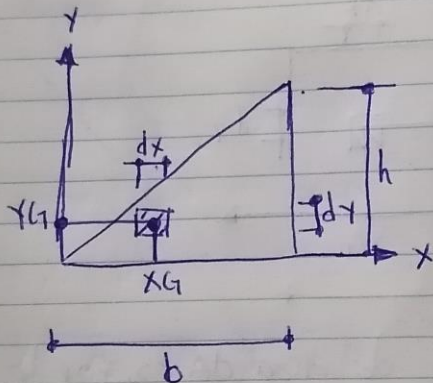 Y
dx
h
YG
dy
X
XG
b